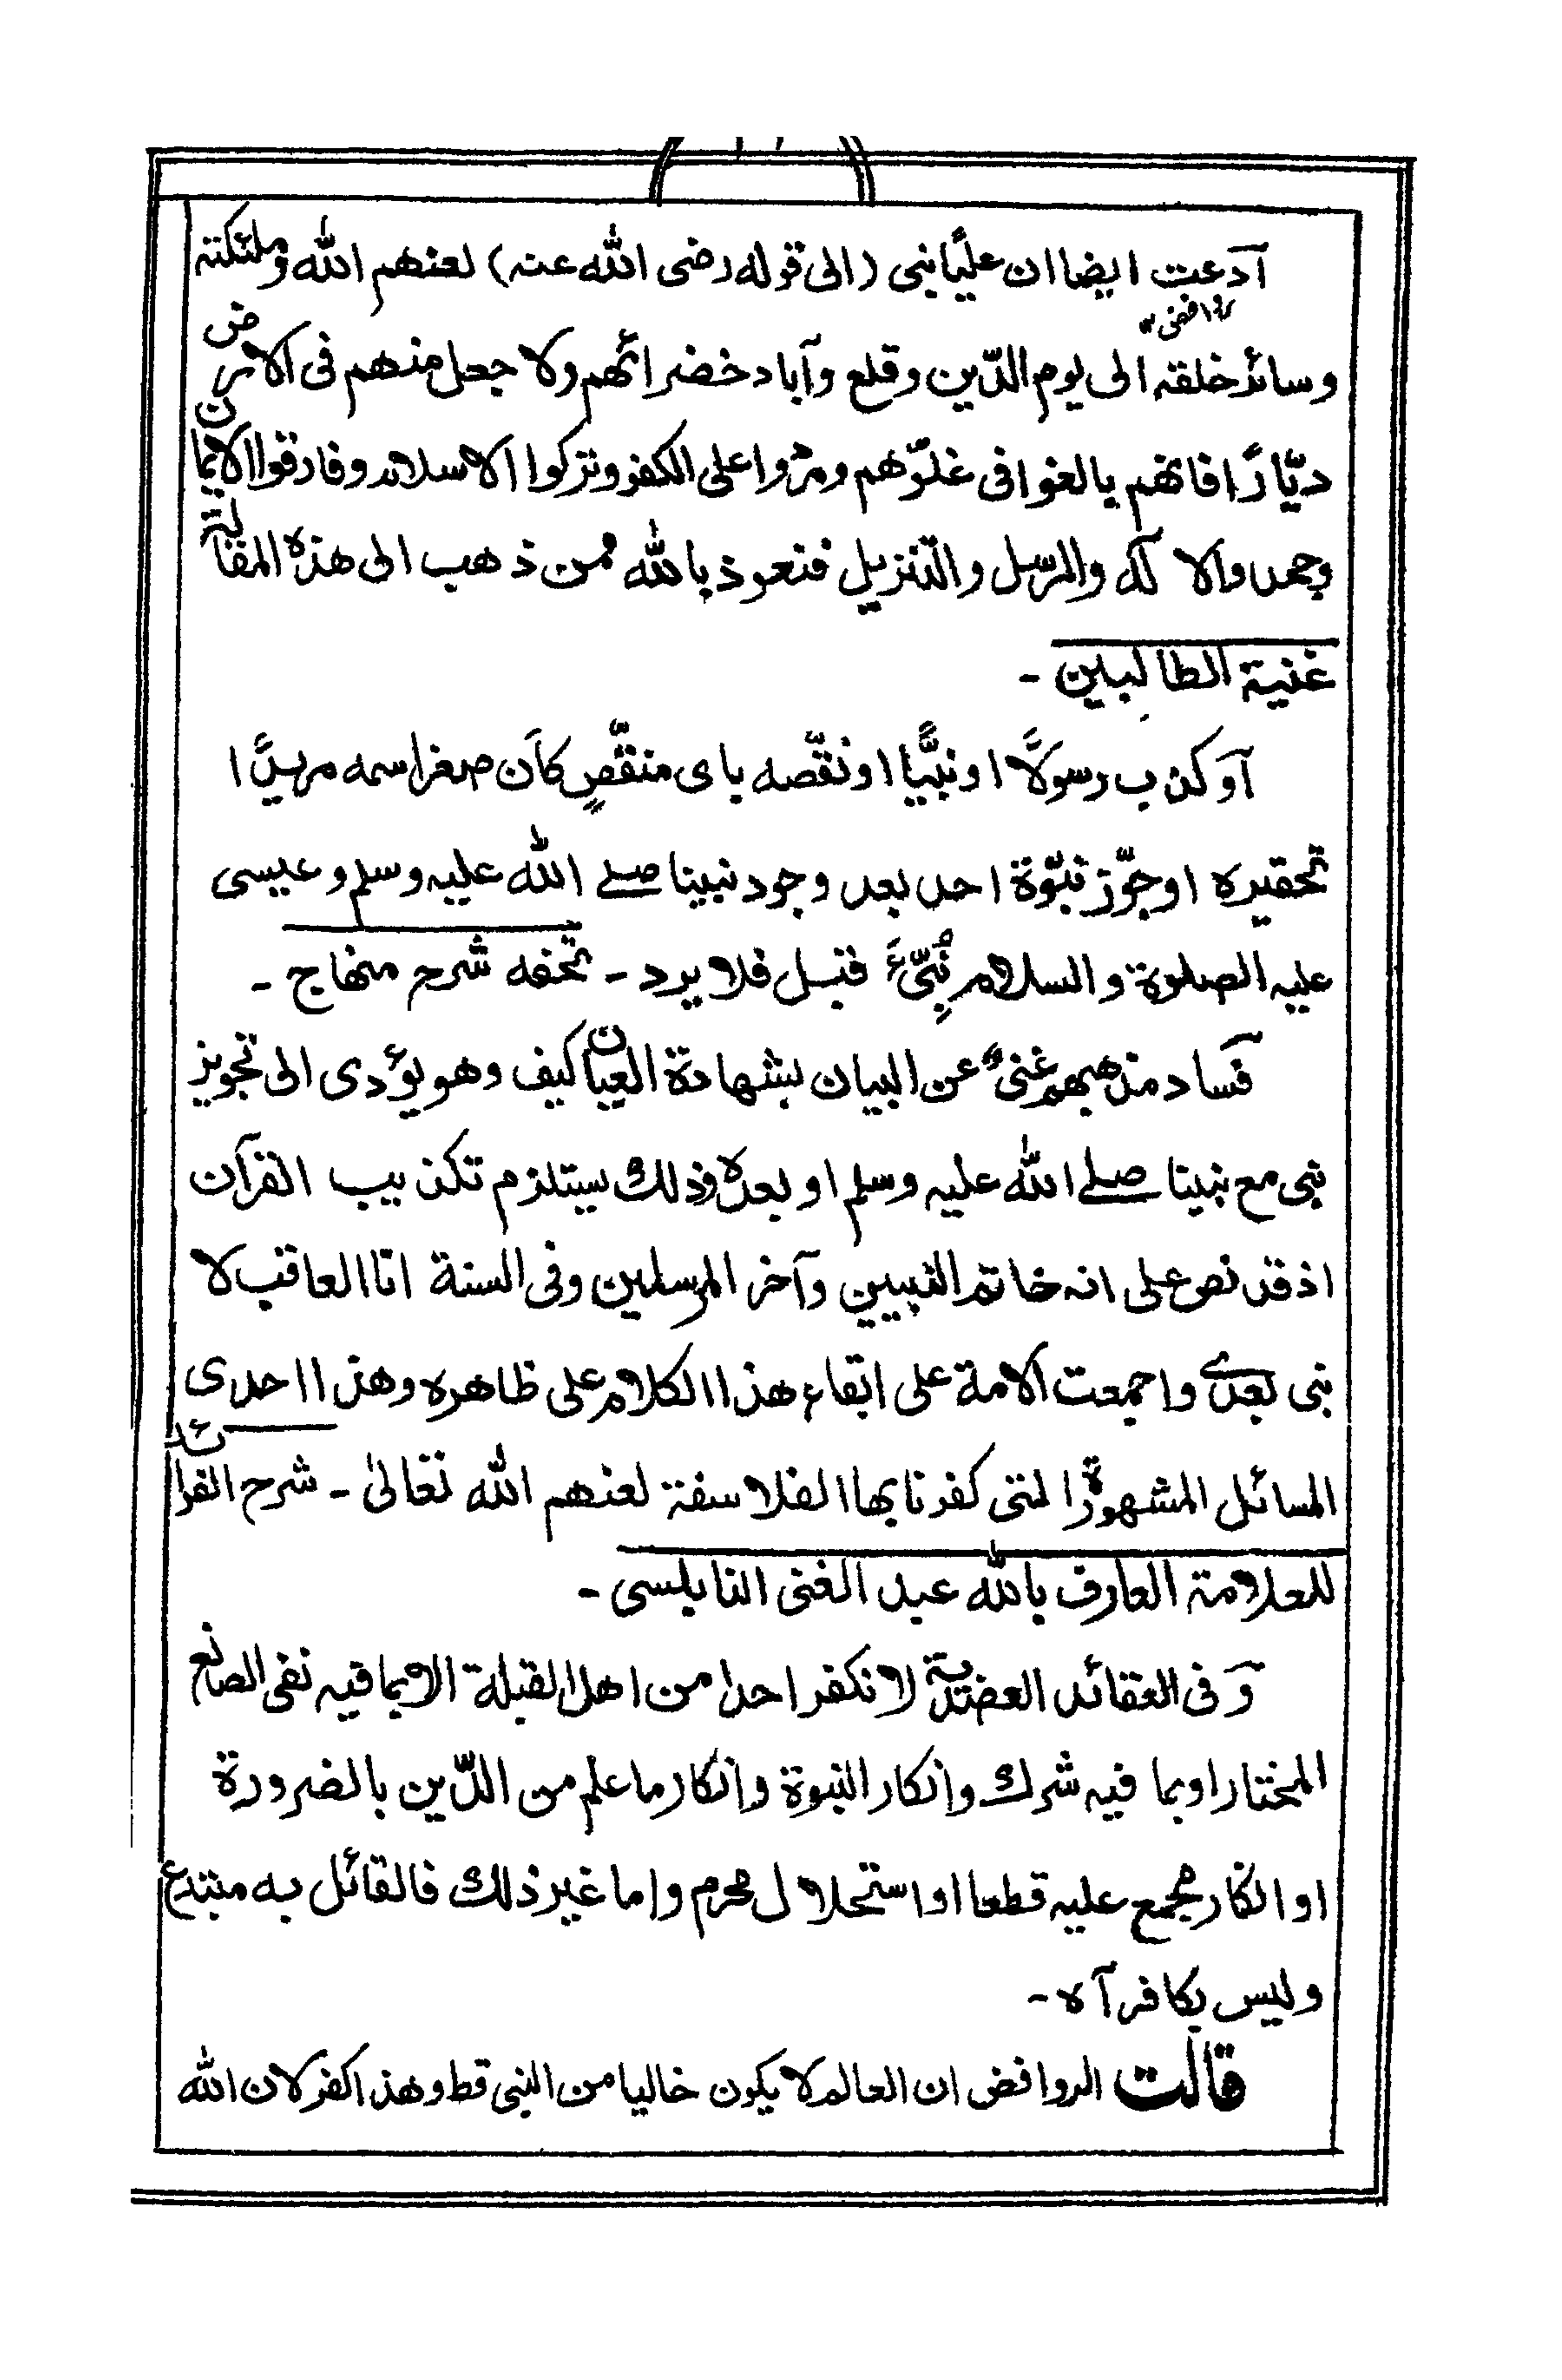 آدعت ايضا ان عليًّا نبى (الى قوله رضى الله عنه) لعنهم الله وملئكته
روافض
وسائر خلقه الى يوم الدّين وقلع وآباد خضرائهم ولا جعل منهم فى الارض
ديّارًا فانهم بالغوا فى غلوّهم ومرّوا على الكفر وتركوا الاسلام وفارقوا الايمان
وجحدوا الا له والرسل والتنزيل فنعوذ بالله ممن ذهب الى هذه المقالة
غنية الطالبين -
آوكذب رسولًا او نبيًّا او نقّصه باى منقّصٍ كاَن صغر اسمه مريدًا
تحقيره او جوّز نبّوة احد بعد وجود نبينا صلے الله عليه وسلم وعيسى
عليه الصلوة والسلام نبىّ قبل فلا يرد - تحفه شرح منهاج -
فساد مذهبهم غنىٌ عن البيان بشهادة العيان كيف وهو يؤدى الى تجويز
نبى مع نبينا صلے الله عليه وسلم او بعده وذلك يستلزم تكذيب القرآن
اذ قد نص على انه خاتم النبيين وآخر المرسلين وفى السنة انا العاقب لا
نبى بعدى واجمعت الامة على ابقاء هذا الكلام على ظاهره وهذا احدى
المسائل المشهورة التى كفرنا بها الفلاسفة لعنهم الله تعالىٰ - شرح الفرائد
للعلامة العارف بالله عبد الغنى النابلسى -
وَفى العقائد العضدية لا نكفر احدا من اهل القبلة الا بما فيه نفى الصانع
المختار او بما فيه شرك وانكار النبوة وانكار ما علم من الدّين بالضرورة
او انكار مجمع عليه قطعا او استحلال محرم واما غير ذلك فالقائل به مبتدع
وليس بكافر آه -
قالت الروافض ان العالم لا يكون خاليا من النبى قط وهذا كفر لان الله